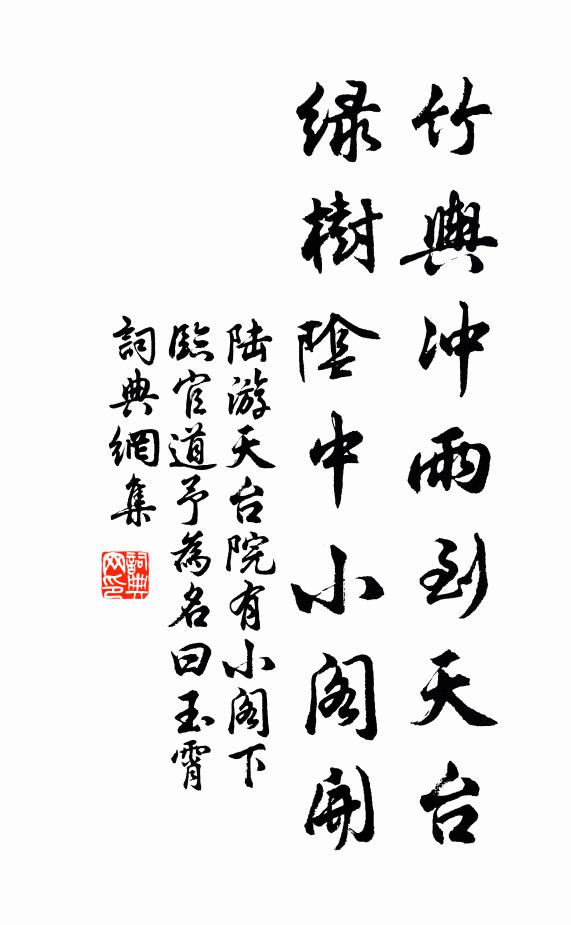 竹輿冲雨到天台
緑樹陰中小閣開
陆游天台院有小阁下
臨官道予為名曰玉霄
詞典網集
詞典网印